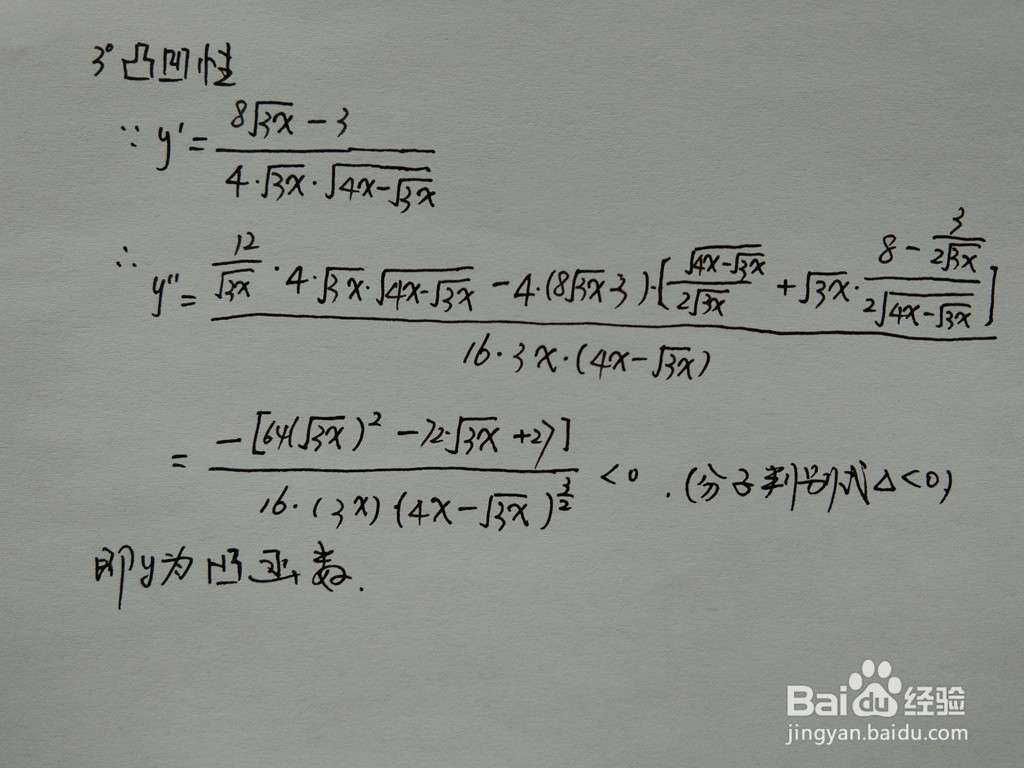 3° 凸凹性
∵ y' = (8√(3x) - 3) / (4·√(3x)·√(4x-√(3x)))
∴ y'' = (12/√(3x) · 4·√(3x)·√(4x-√(3x)) - 4·(8√(3x)-3)·[√(4x-√(3x))/(2√(3x)) + √(3x)·(8 - 3/(2√(3x)))/(2√(4x-√(3x)))]) / (16·3x·(4x-√(3x)))
= -[64(√(3x))² - 72·√(3x) + 27] / (16·(3x)·(4x-√(3x))^(3/2)) < 0 . (分子判别式 Δ<0)
即y为凹函数.
Baidu经验
jingyan.baidu.com